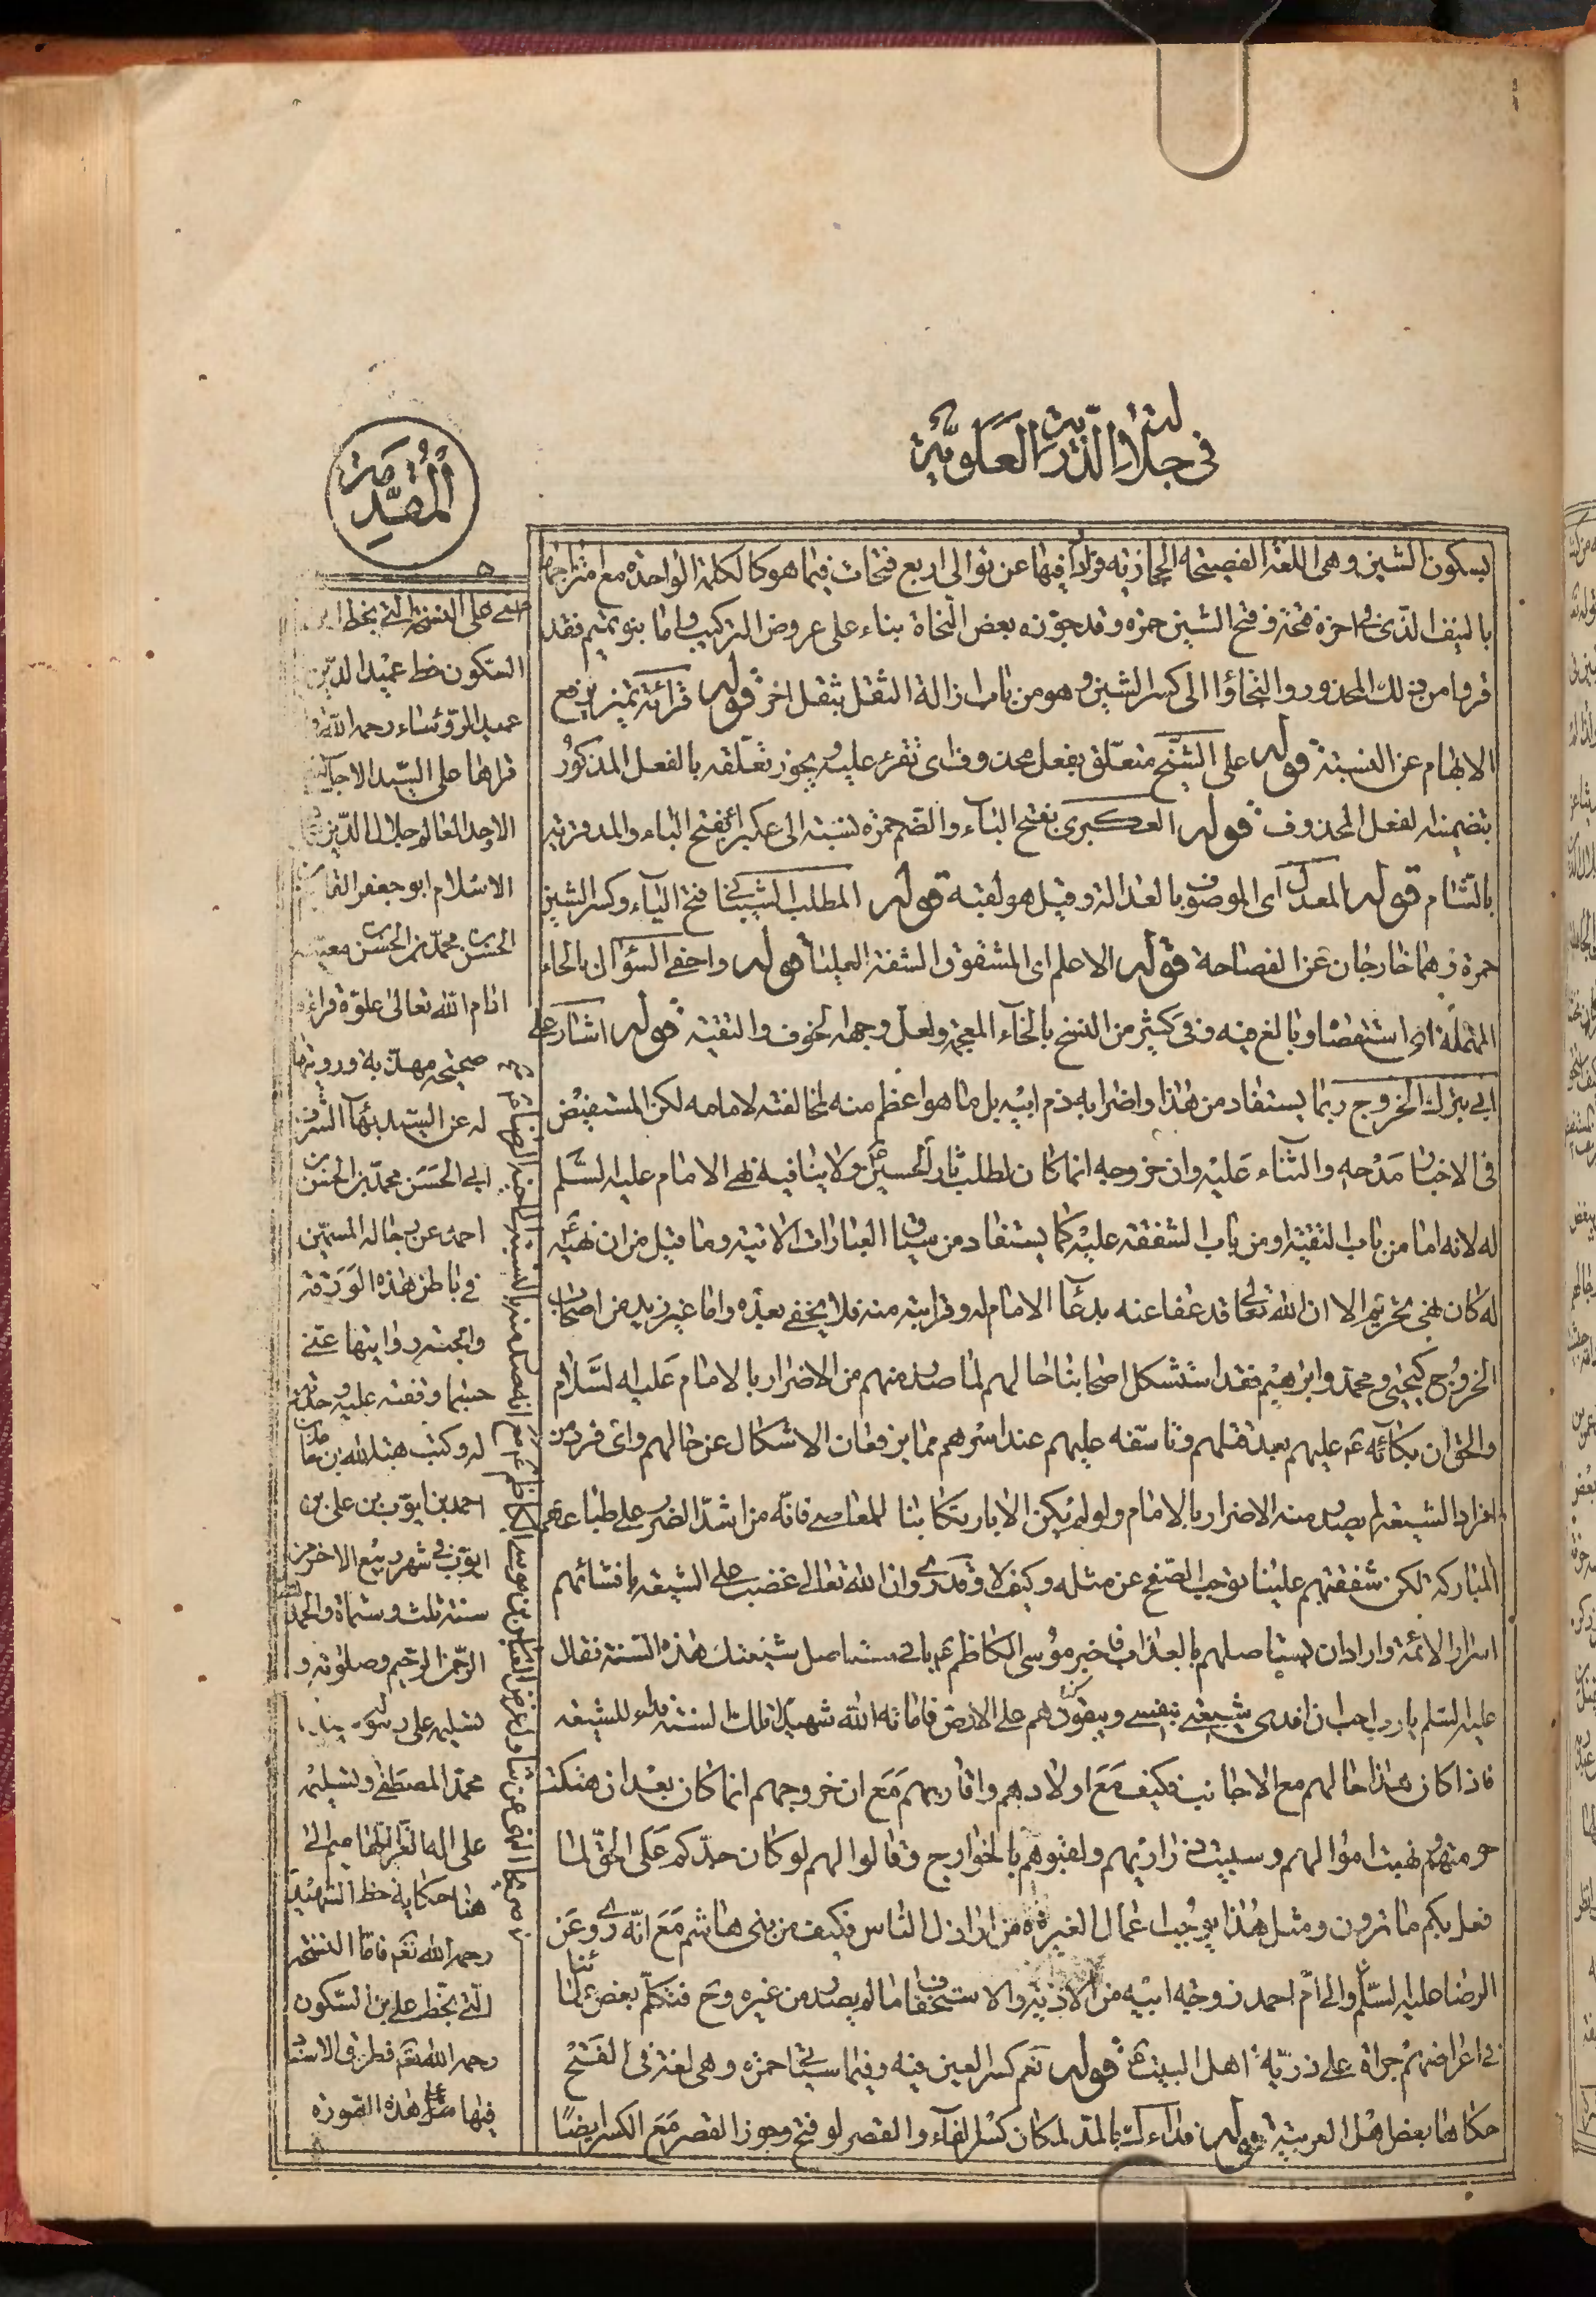 في جلالة الذرية العلوية
المقدمة
بسكون الشين وهى اللغة الفصيحة الحجازية فرارا فيها عن توالى اربع فتحات فيما هو كالكلمة الواحدة مع امتزاجها
بالنيف الذى فى اخره فتحة وفتح الشين حمزه وقد جوزه بعض النحاة بناء على عروض التركيب واما بنو تميم فقد
فروا من ذلك المحذور والتجاؤا الى كسر الشين وهو من باب ازالة الثقل بثقل اخر قوله قرائة تميز يرفع
الابهام عن النسبة قوله على الشيخ متعلق بفعل محذوف اى تقرء عليه ويجوز تعلقه بالفعل المذكور
بتضمينه لفعل المحذوف قوله العكبرى بفتح الباء والضم حمزه نسبة الى عكبراء بفتح الباء والمد قرية
بالشام قوله المعدل اى الموصوف بالعدالة وقيل هو لقبه قوله المطلب الشيبانى فتح الياء وكسر الشين
حمزة وهما خارجان عن الفصاحة قوله الاعلم اى المشقوق الشفة العليا قوله واحفى السؤال بالحاء
المهملة اى استقصا وبالغ فيه وفى كثير من النسخ بالخاء المعجمة ولعل وجهه الخوف والتقية قوله اشار على
ابى بترك الخروج ربما يستفاد من هذا واضرابه ذم ابيه بل ما هو اعظم منه لمخالفته لامامه لكن المستفيض
فى الاخبار مدحه والثناء عليه وان خروجه انما كان لطلب ثار الحسين ولا ينافيه نهى الامام عليه السلم
له لانه اما من باب التقية او من باب الشفقة عليه كما يستفاد من سياق العبارات الاتية وما قيل من ان نهيه
له كان نهى تحريم الا ان الله تعالى قد عفا عنه بدعاء الامام له وقرابته منه فلا يخفى بعده واما غير زيد من اصحاب
الخروج كيحيى ومحمد وابرهيم فقد استشكل اصحابنا حالهم لما صدر منهم من الاضرار بالامام عليه السلام
والحق ان بكائه ع عليهم بعد قتلهم وتاسفه عليهم عند اسرهم مما يرفعان الاشكال عن حالهم واى فرد من
افراد الشيعة لم يصدر منه الاضرار بالامام ولو لم يكن الا بارتكابنا للمعاصى فانه من اشد الضرر على طباعهم
المباركة لكن شفقتهم علينا توجب الصفح عن مثله وكيف لا وقد روى ان الله تعالى غضب على الشيعة بافشائهم
اسرار الائمة واراد ان يستاصلهم بالعذاب فاخبر موسى الكاظم ع بانى مستاصل شيعتك هذه السنة فقال
عليه السلم يا رب احب ان افدى شيعتى بنفسى ويبقون هم على الارض فاماته الله شهيدا تلك السنة فداء للشيعة
فاذا كان هذا حالهم مع الاجانب فكيف مع اولادهم واقاربهم مع ان خروجهم انما كان بعد ان هتكت
حرمتهم ونهبت اموالهم وسبيت ذراريهم ولقبوهم بالخوارج وقالوا لهم لو كان جدكم على الحق لما
فعل بكم ما ترون ومثل هذا يوجب اعمال الغيرة من اراذل الناس فكيف من بنى هاشم مع انه روى عن
الرضا عليه السلم والى ام احمد زوجة ابيه من الاذية والاستخفاف ما لم يصدر من غيره وح فتكلم بعض علمائنا
فى اعراضهم جراة على ذرية اهل البيت ع قوله نعم كسر العين فيه وفيما سيأتى حمزه وهى لغة فى الفتح
حكاها بعض اهل العربية قوله فداءك بالمد لمكان كسر الفاء والقصر لو فتح وجوز القصر مع الكسر ايضا
على النسخة التى بخط ابن
السكون خط عميد الدين
عميد الرؤساء رحمه الله
قراها على السيد الاجل
الاوحد العالم جلال الدين
الاسلام ابو جعفر القاسم بن
الحسن بن محمد بن الحسن معية
ادام الله تعالى علوه قراءة
صحيحة مهذبة ورويتها
له عن السيد بهاء الشرف
ابى الحسن محمد بن الحسن بن
احمد عن رجاله المسمين
فى باطن هذه الورقة
وابحته روايتها عنى
حسبما وقفته عليه وحددته
له وكتب هبة الله بن حامد بن
احمد بن ايوب بن على بن
ايوب فى شهر ربيع الاخر من
سنة ثلث وستماة والحمد لله
الرحمن الرحيم وصلوته و
تسليمه على رسوله سيدنا
محمد المصطفى وتسليمه
على اله الغر اللهاميم الى
هنا حكاية خط الشهيد
رحمه الله نعم فاما النسخة
التى بخط على بن السكون
رحمه الله نعم فطريق الاسناد
فيها على هذه الصورة